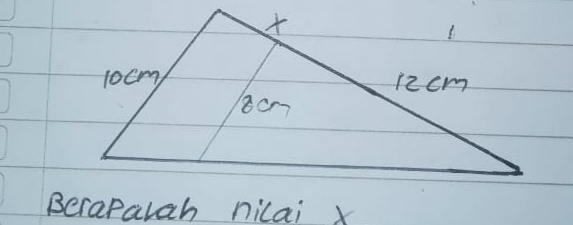 x
10cm
8cm
12cm
Berapakah nilai x